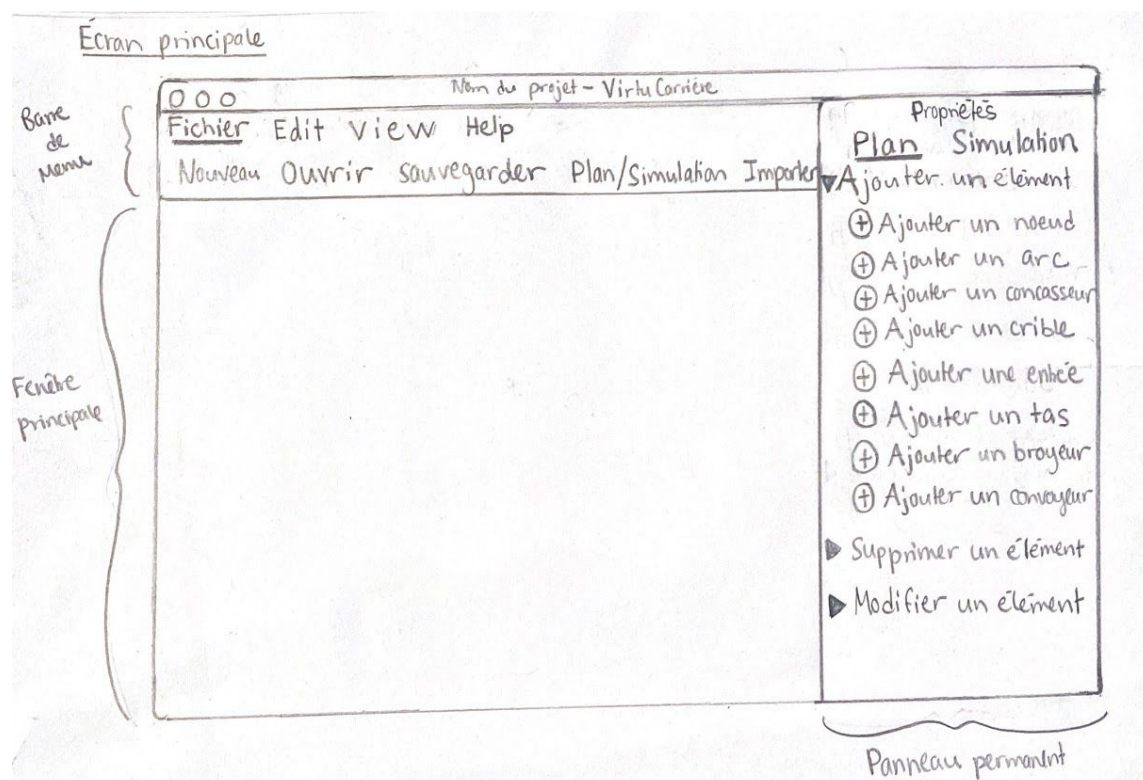 Écran principale
Nom du projet - VirtuCarrière
Barre
de
Menu
Fichier Edit View Help
Nouveau Ouvrir sauvegarder Plan/Simulation Importer
Fenêtre
principale
Propriétés
Plan Simulation
Ajouter un élément
Ajouter un noeud
Ajouter un arc
Ajouter un concasseur
Ajouter un crible
Ajouter une entrée
Ajouter un tas
Ajouter un broyeur
Ajouter un convoyeur
Supprimer un élément
Modifier un élément
Panneau permanent